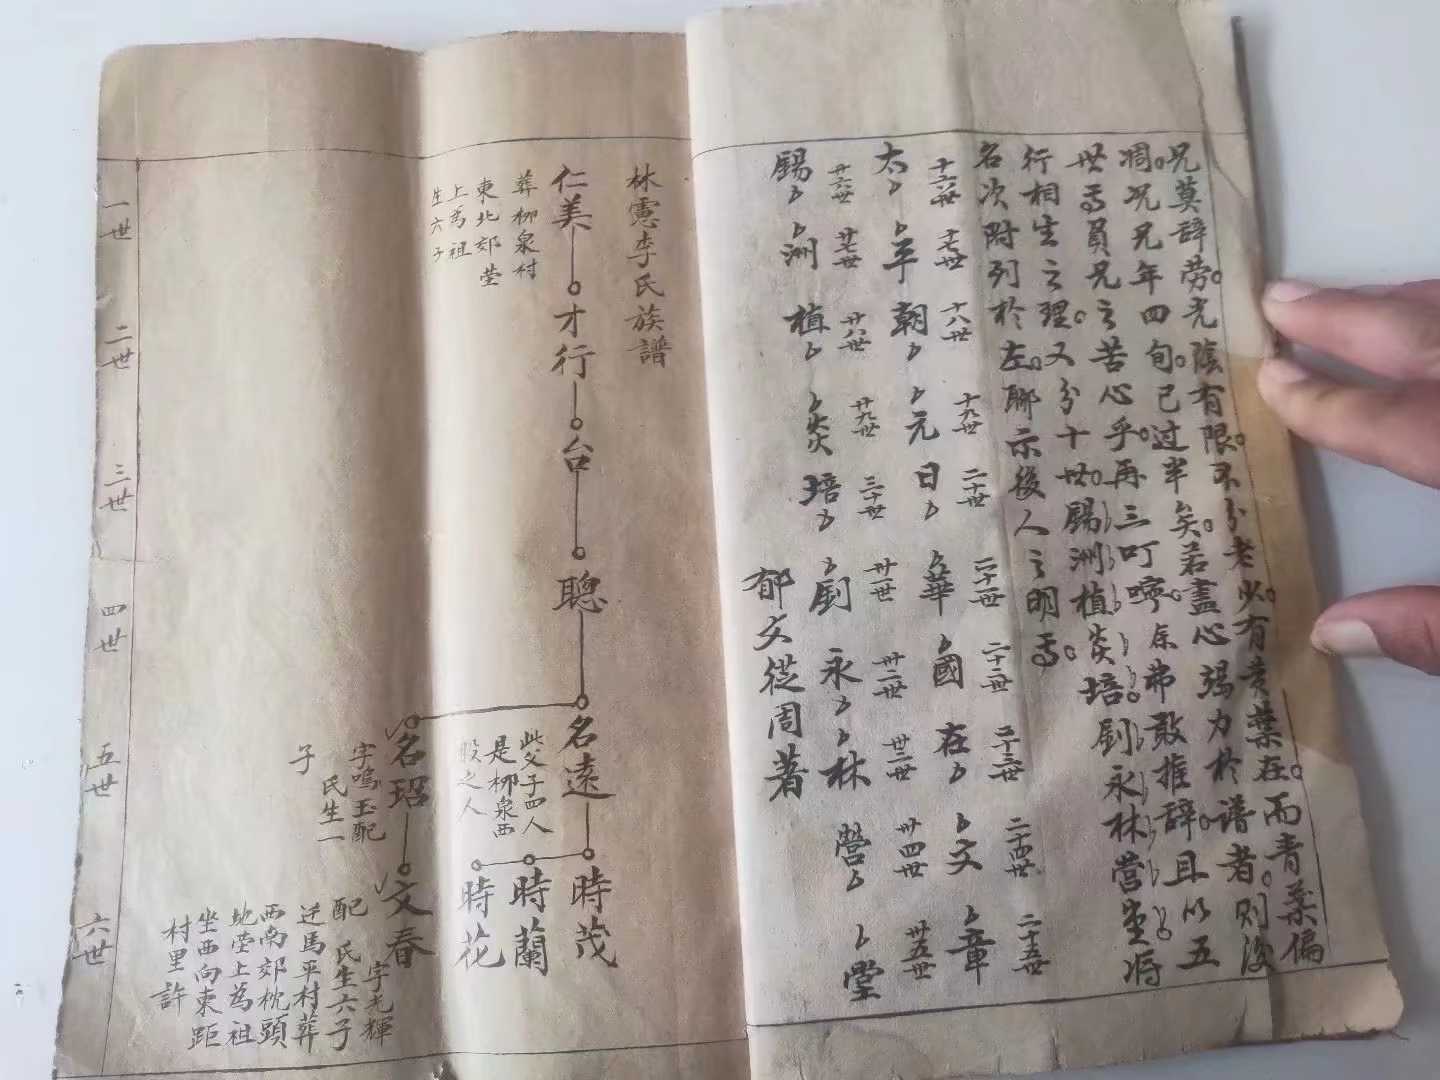 兄莫辞劳。光陰有限。不分老少。有黄葉在。而青葉偏
凋。况兄年四旬。已过半矣。若盡心竭力於譜者。则後
世焉員兄之苦心乎。再三叮嚀。余弗敢推辞。且以五
行相生之理。又分十世。賜洲植炎培。釗永林营坐。将
名次附列於左。聊示後人之明焉。
十六世 十七世 十八世 十九世 二十世 二十一世 二十二世 二十三世 二十四世 二十五世
太 平 朝 元 日 華 國 在 文 章
廿六世 廿七世 廿八世 廿九世 三十世 卅一世 卅二世 卅三世 卅四世 卅五世
賜 洲 植 炎 培 釗 永 林 營 堂
郁文從周著
林憲李氏族譜
仁美 才行 台 聰 名遠 時茂
時蘭
時花
葬柳泉村
東北郊塋
上為祖
生六子
此父子四人
是柳泉西
股之人
名玿 文春
字鳴玉配
氏生一
子
字光輝
配 氏生六子
迁馬平村葬
西南郊枕頭
地塋上為祖
坐西向東距
村里許
一世
二世
三世
四世
五世
六世